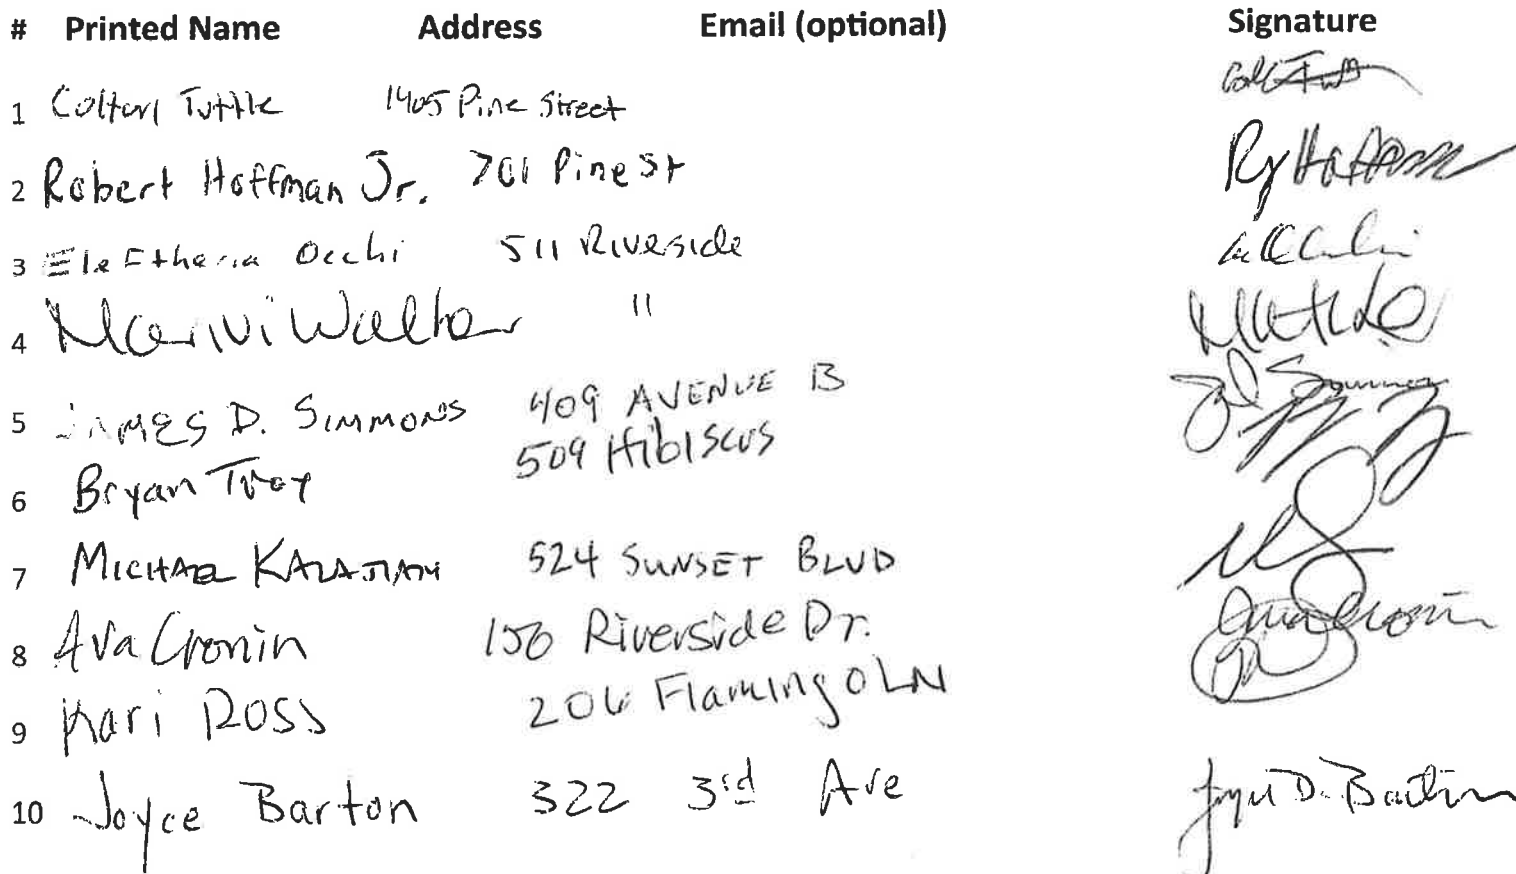 # Printed Name Address Email (optional) Signature
1 Colton Tuttle 1405 Pine Street
2 Robert Hoffman Jr. 701 Pine St
3 Eleftheria Occhi 511 Riveside
4 "
5 JAMES D. SIMMONS 409 AVENUE B
6 Bryan Troy 509 Hibiscus
7 MICHAEL KALAJIAN 524 SUNSET BLVD
8 Ava Cronin 150 Riverside Dr. Ava Cronin
9 Kari Ross 206 Flamingo LN
10 Joyce Barton 322 3rd Ave Joyce D. Barton